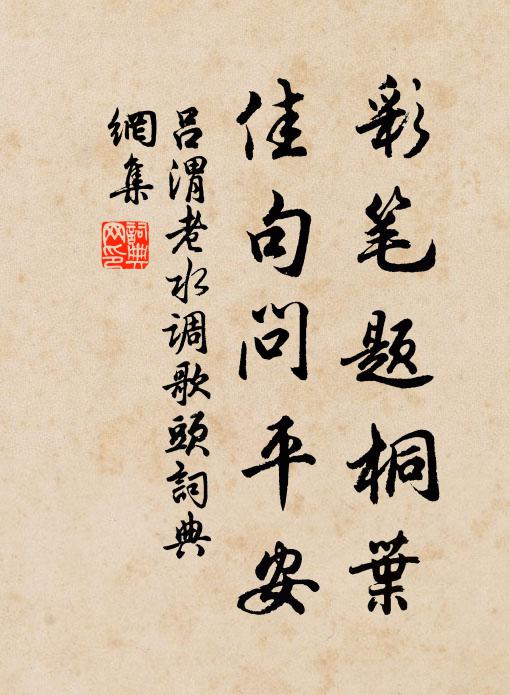 彩笔题桐葉
佳句问平安
吕渭老水调歌頭詞典
網集
詞典网印